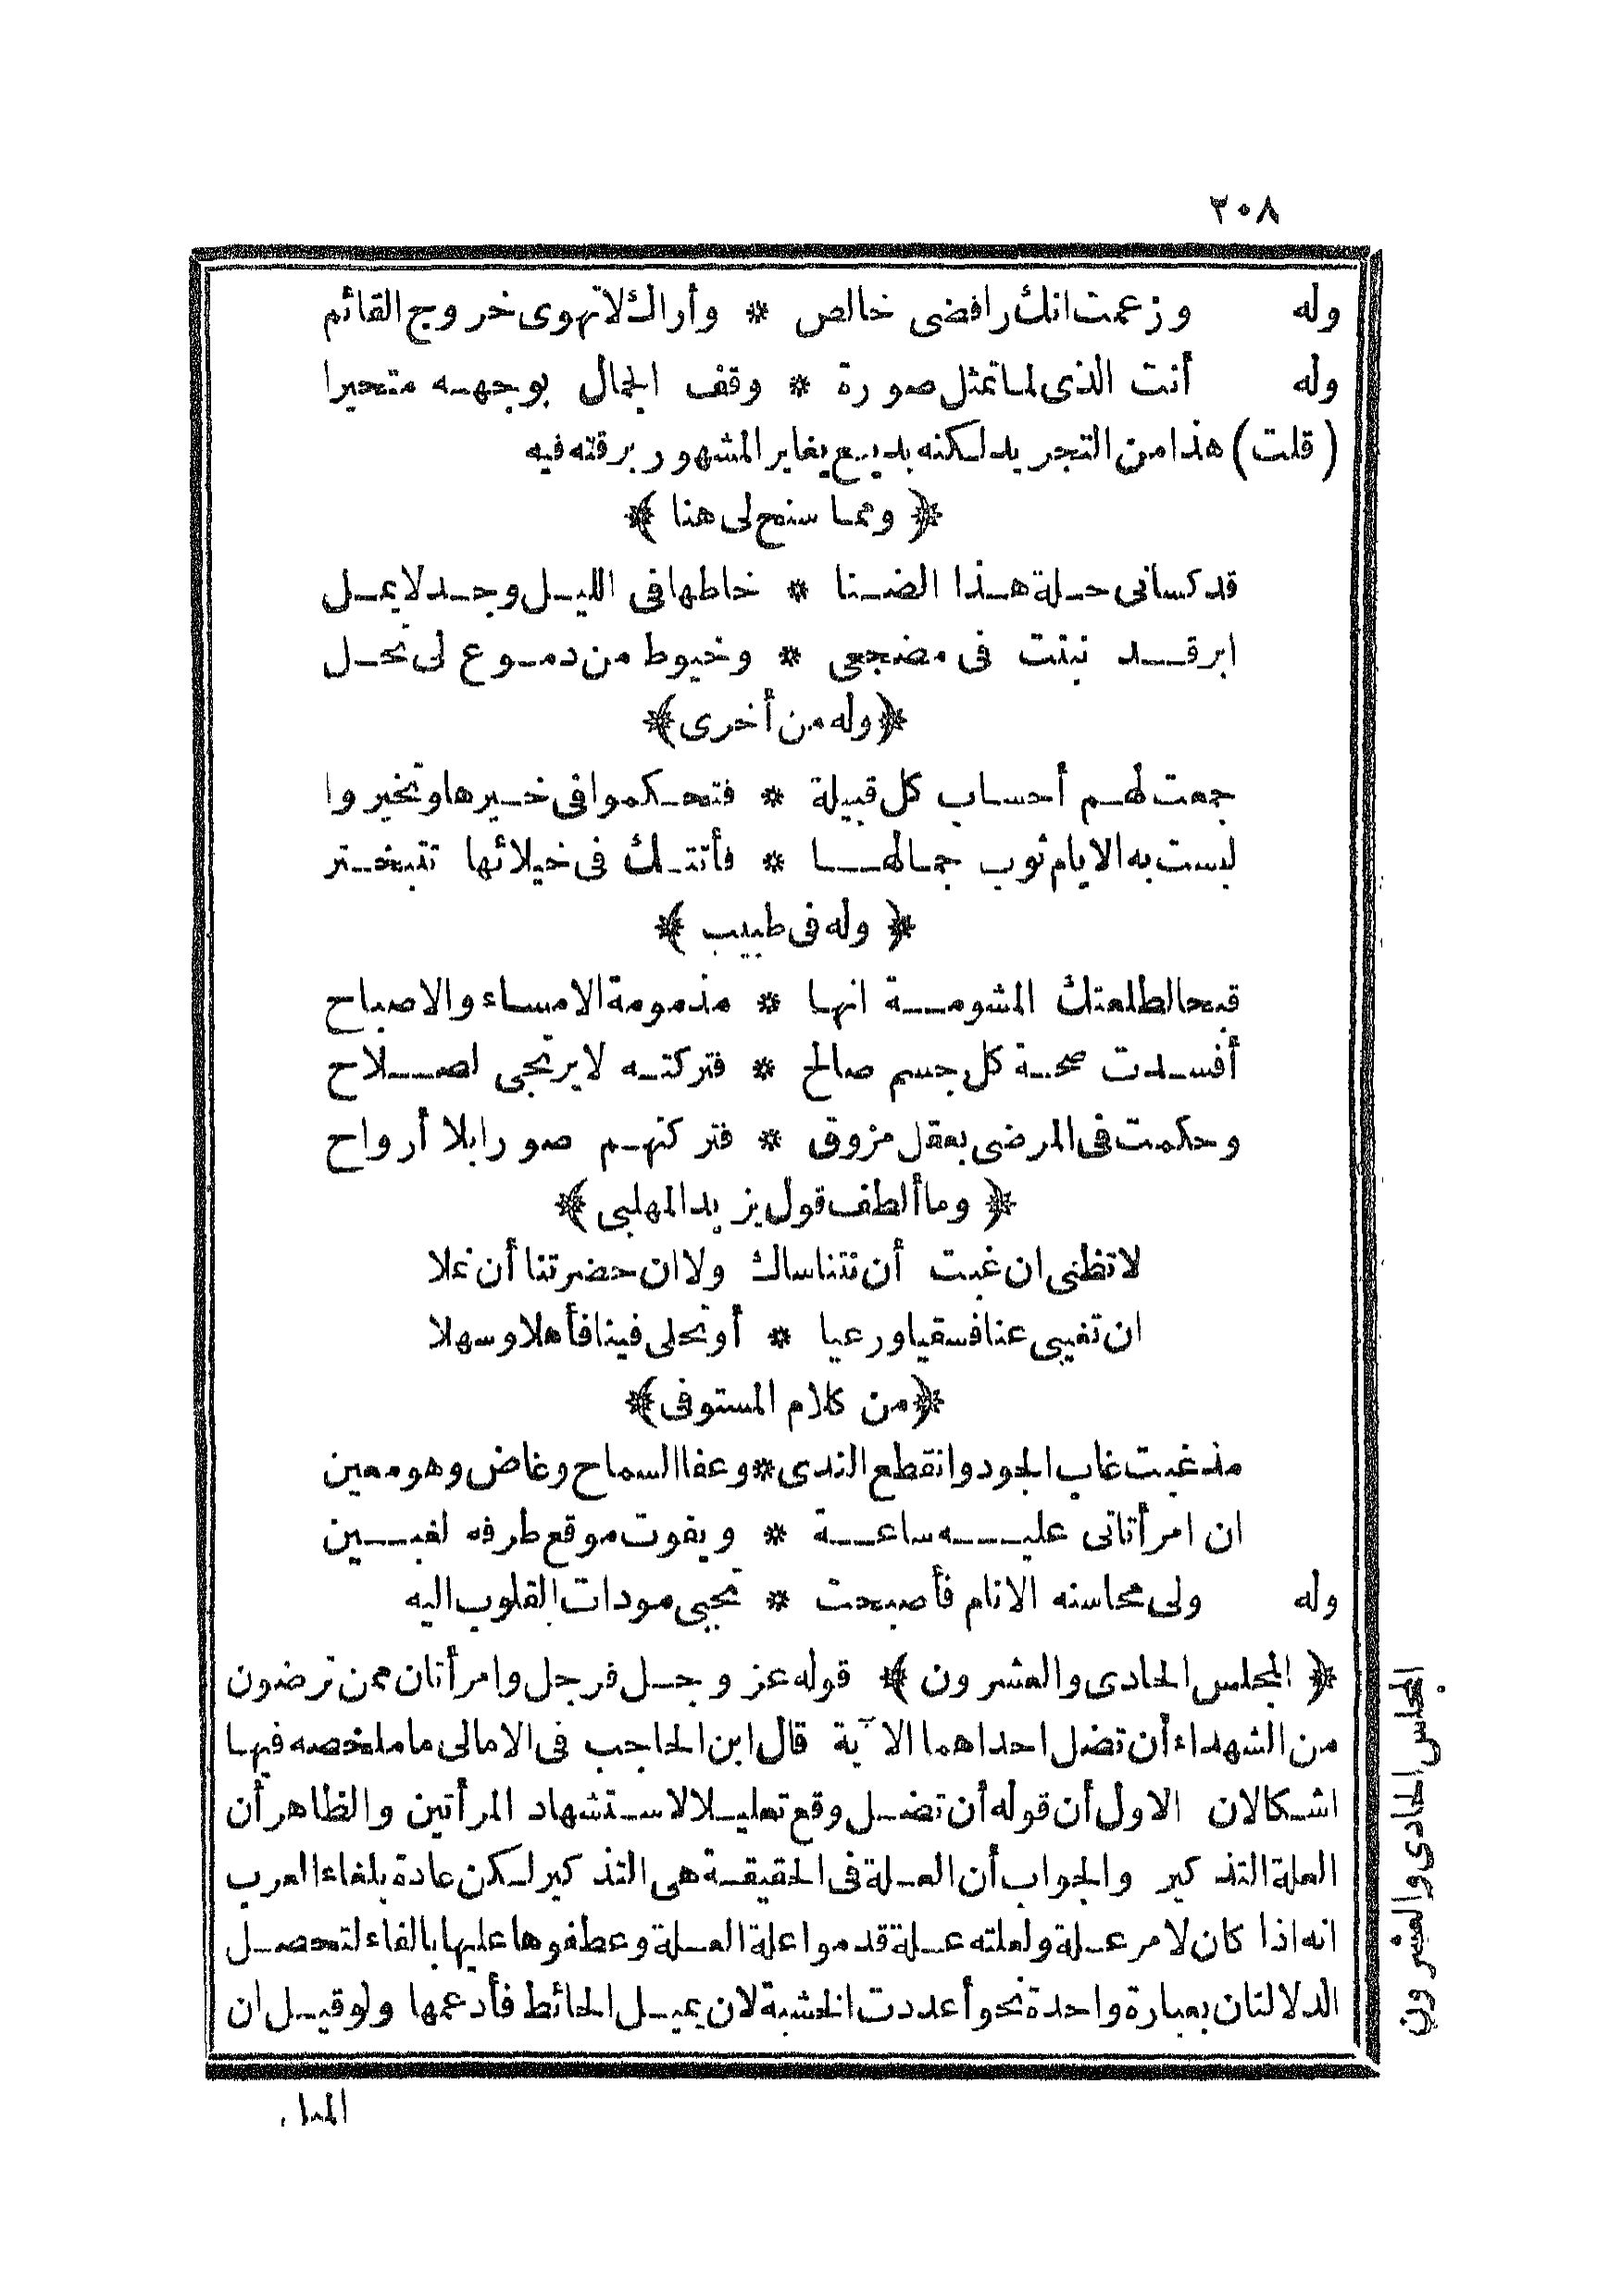 ٢٠٨
وله وزعمت انك رافضى خالص * وأراك لا تهوى خروج القائم
وله أنت الذى لما تمثل صورة * وقف الجمال بوجهه متحيرا
(قلت) هذا من التجريد لكنه بديع يغاير المشهور برقته فيه
﴿ ومما سنح لى هنا ﴾
قد كسانى حلة هذا الضنا * خاطها فى الليل وجد لا يمل
ابر قد نبتت فى مضجعى * وخيوط من دموع لى تحل
﴿وله من أخرى﴾
جمعت لهم أحساب كل قبيلة * فتحكموا فى خيرها وتخيروا
لبست به الايام ثوب جمالها * فأتتك فى خيلائها تتبختر
﴿ وله فى طبيب ﴾
قبحا لطلعتك المشومة انها * مذمومة الامساء والاصباح
أفسدت صحة كل جسم صالح * فتركته لا يرتجى لصلاح
وحكمت فى المرضى بعقل مزوق * فتركتهم صورا بلا أرواح
﴿ وما ألطف قول يزيد المهلبى ﴾
لا تظنى ان غبت أن نتناساك ولا ان حضرتنا أن نملا
ان تغيبى عنا فسقيا ورعيا * أو تحلى فينا فأهلا وسهلا
﴿من كلام المستوفى﴾
مذ غبت غاب الجود وانقطع الندى * وعفا السماح وغاض وهو معين
ان امرأ تاتى عليه ساعة * ويفوت موقع طرفه لغبين
وله ولى محاسنه الانام فأصبحت * تجبى مودات القلوب اليه
﴿ المجلس الحادى والعشرون ﴾ قوله عز وجل فرجل وامرأتان ممن ترضون
من الشهداء أن تضل احداهما الآية قال ابن الحاجب فى الامالى ما ملخصه فيها
اشكالان الاول أن قوله أن تضل وقع تعليلا لاستشهاد المرأتين والظاهر أن
العلة التذكير والجواب أن العلة فى الحقيقة هى التذكير لكن عادة بلغاء العرب
انه اذا كان لامر علة ولعلته علة قدموا علة العلة وعطفوها عليها بالفاء لتحصل
الدلالتان بعبارة واحدة نحو أعددت الخشبة لان يميل الحائط فأدعمها ولو قيل ان
المجلس الحادى والعشرون